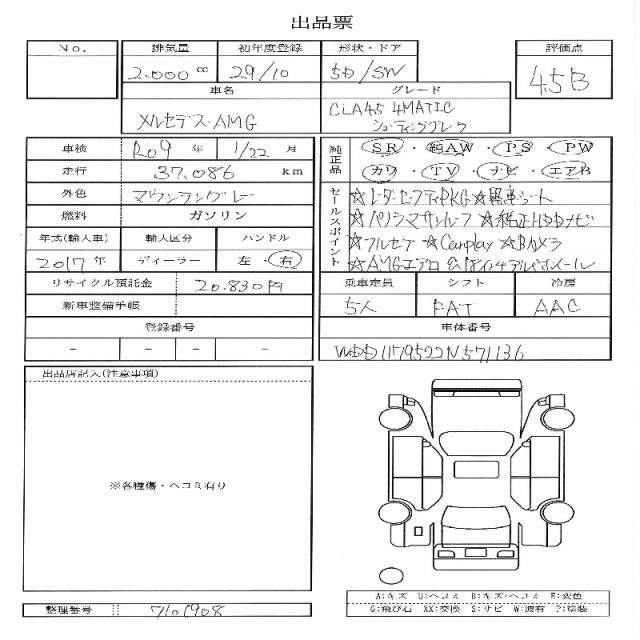 出品票
No. 排気量 初年度登録 形状・ドア 評価点
2.000 cc 29/10 5D/SW 4.5B
車名 グレード
メルセデス・AMG CLA45 4MATIC
シューティングブレーク
車検 R09 年 1/22 月
走行 37,086 km
外色 マウンテングレー
燃料 ガソリン
年式(輸入車) 輸入区分 ハンドル
2017 年 ディーラー 左・右
リサイクル預託金 20.830円
新車整備手帳
登録番号
- - - -
純正品 SR・純AW・PS・PW
カワ・TV・ナビ・エアB
セールスポイント
☆レーダーセーフティPKG☆黒革シート
☆パノラマサンルーフ ☆純正HDDナビ
☆フルセグ ☆Carplay ☆Bカメラ
☆AMGエアロ
乗車定員 シフト 冷房
5人 FAT AAC
車体番号
WDD1179522N571136
出品店記入(注意事項)
※各種傷・ヘコミ有り
A:キズ U:ヘコミ B:キズ・ヘコミ E:変色
G:飛び石 XX:交換 S:サビ W:波有 P:塗装
整理番号 7101908